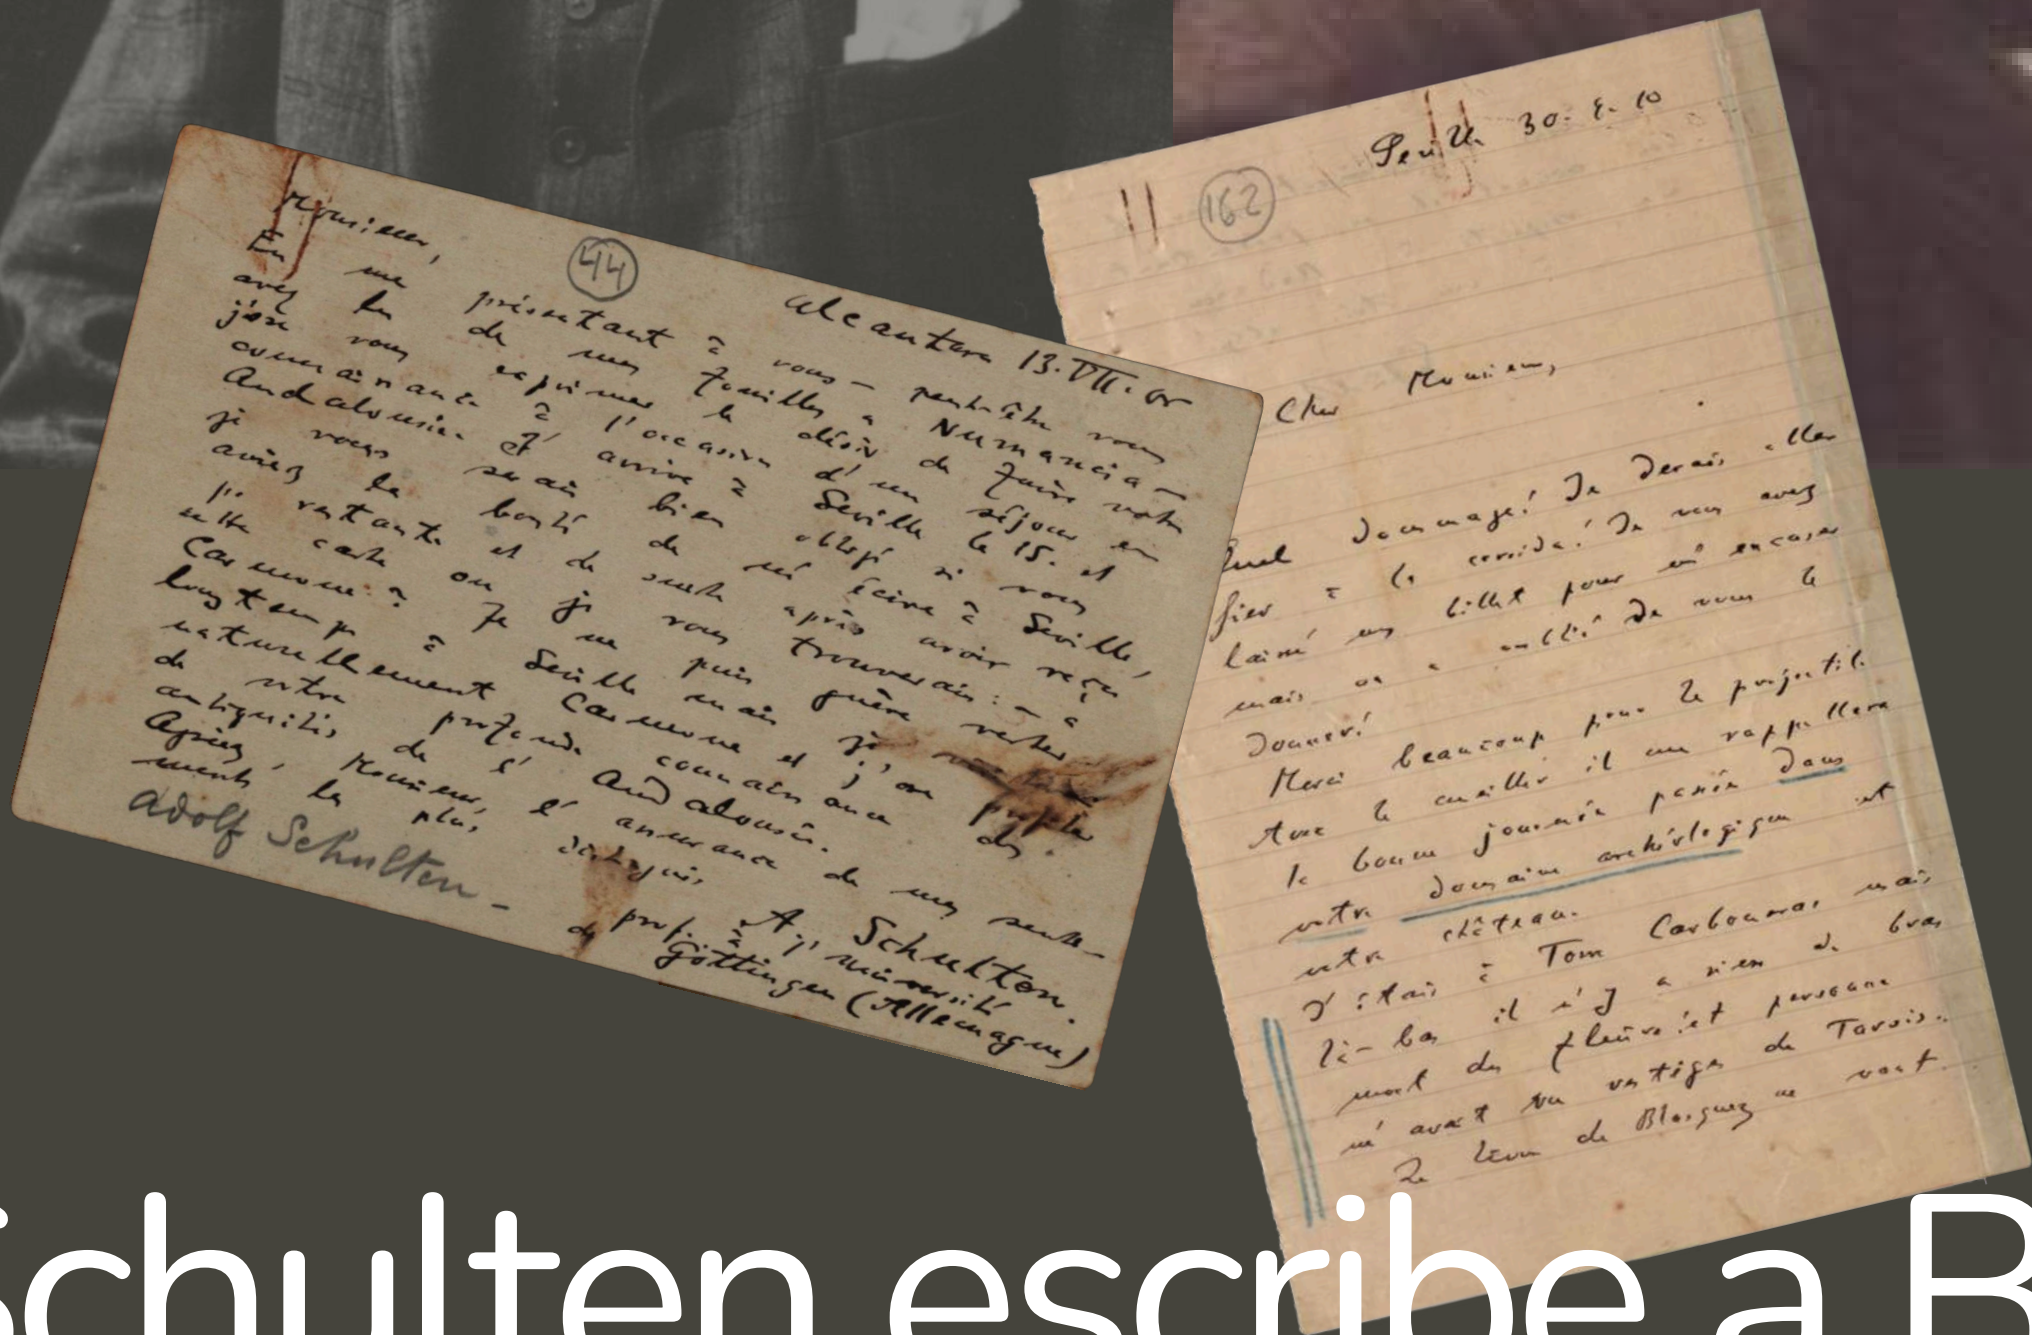 44
Alcantara 13.VII.05
Monsieur,
En me présentant à vous – peut-être vous
avez lu de mes fouilles a Numancia –
j'ose vous exprimer le désir de faire votre
connaissance à l'occasion d'un séjour en
Andalousie. J'arrive à Seville le 15. et
je vous serais bien obligé si vous
aviez la bonté de m'écrire à Seville,
p. restante et de suite après avoir reçu
cette carte ou je vous trouverais: – à
Carmone? Je ne puis guère rester
longtemps à Seville mais je
naturellement Carmone et j'ose profiter
de votre profonde connaissance des
antiquités de l'Andalousie.
Agréez, Monsieur, l'assurance de mes senti-
ments les plus distingués
A. Schulten.
prof. à l'université
de Göttingen (Allemagne)
Adolf Schulten –
162
Sevilla 30. 10
Cher Monsieur,
Quel dommage! Je devais aller
hier à la corrida! Je vous avez
laissé un billet pour m'encaser
mais on a oublié de vous le
donner!
Merci beaucoup pour le projectile
Avec le cuiller il me rappellera
la bonne journée passée dans
votre domaine archéologique et
votre château.
J'étais à Torre Carbonera mais
là-bas il n'y a rien de bras
mort du fleuve et personne
n'avait vu vestiges de Tarsis.
Le livre de Blasquez ne vaut
Schulten escribe a B